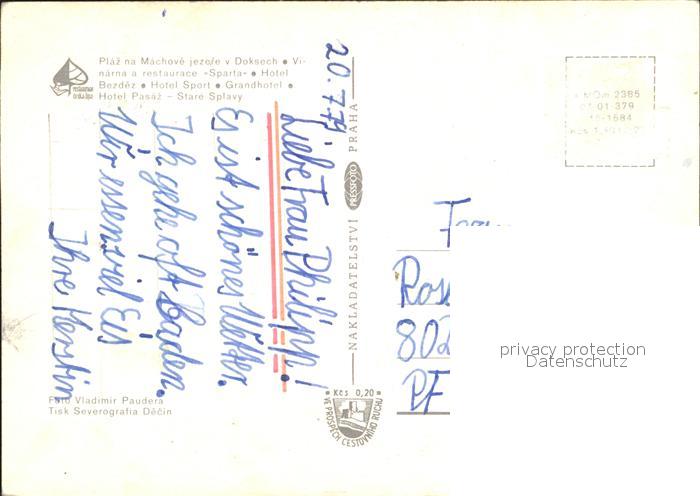 Pláž na Máchově jezeře v Doksech • Vi-
nárna a restaurace »Sparta« • Hotel
Bezděz • Hotel Sport • Grandhotel •
Hotel Pasáž – Staré Splavy
restaurace
česká lípa
20.7.79
Liebe Frau Philipp!
Es ist schönes Wetter.
Ich gehe oft Baden.
Wir essen viel Eis
Ihre Kerstin
Foto Vladimír Paudera
Tisk Severografia Děčín
NAKLADATELSTVÍ PRESSFOTO PRAHA
• Kčs 0,20 •
VE PROSPĚCH CESTOVNÍHO RUCHU
MOm 2385
01 01-379
-1684
802
PF
privacy protection
Datenschutz